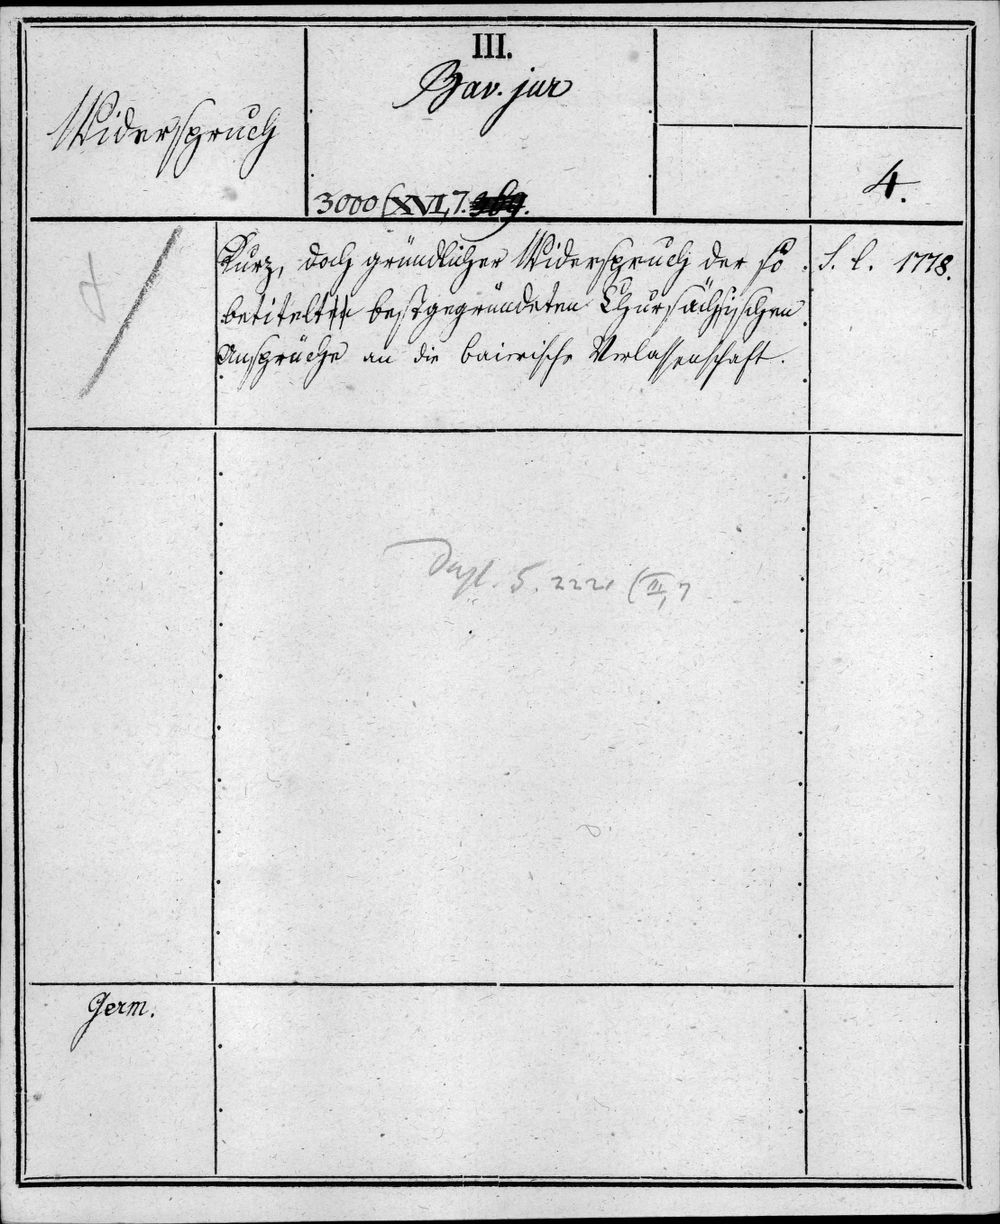 III.
Bav. jur
Widerspruch
4.
3000 (XVI,7.
Kurz, doch gründlicher Widerspruch der so
betitelten bestgegründeten Chursächsischen
Ansprüche an die baierische Verlassenschaft.
S. l. 1778.
Dupl. 5. 222, (II, 7
Germ.